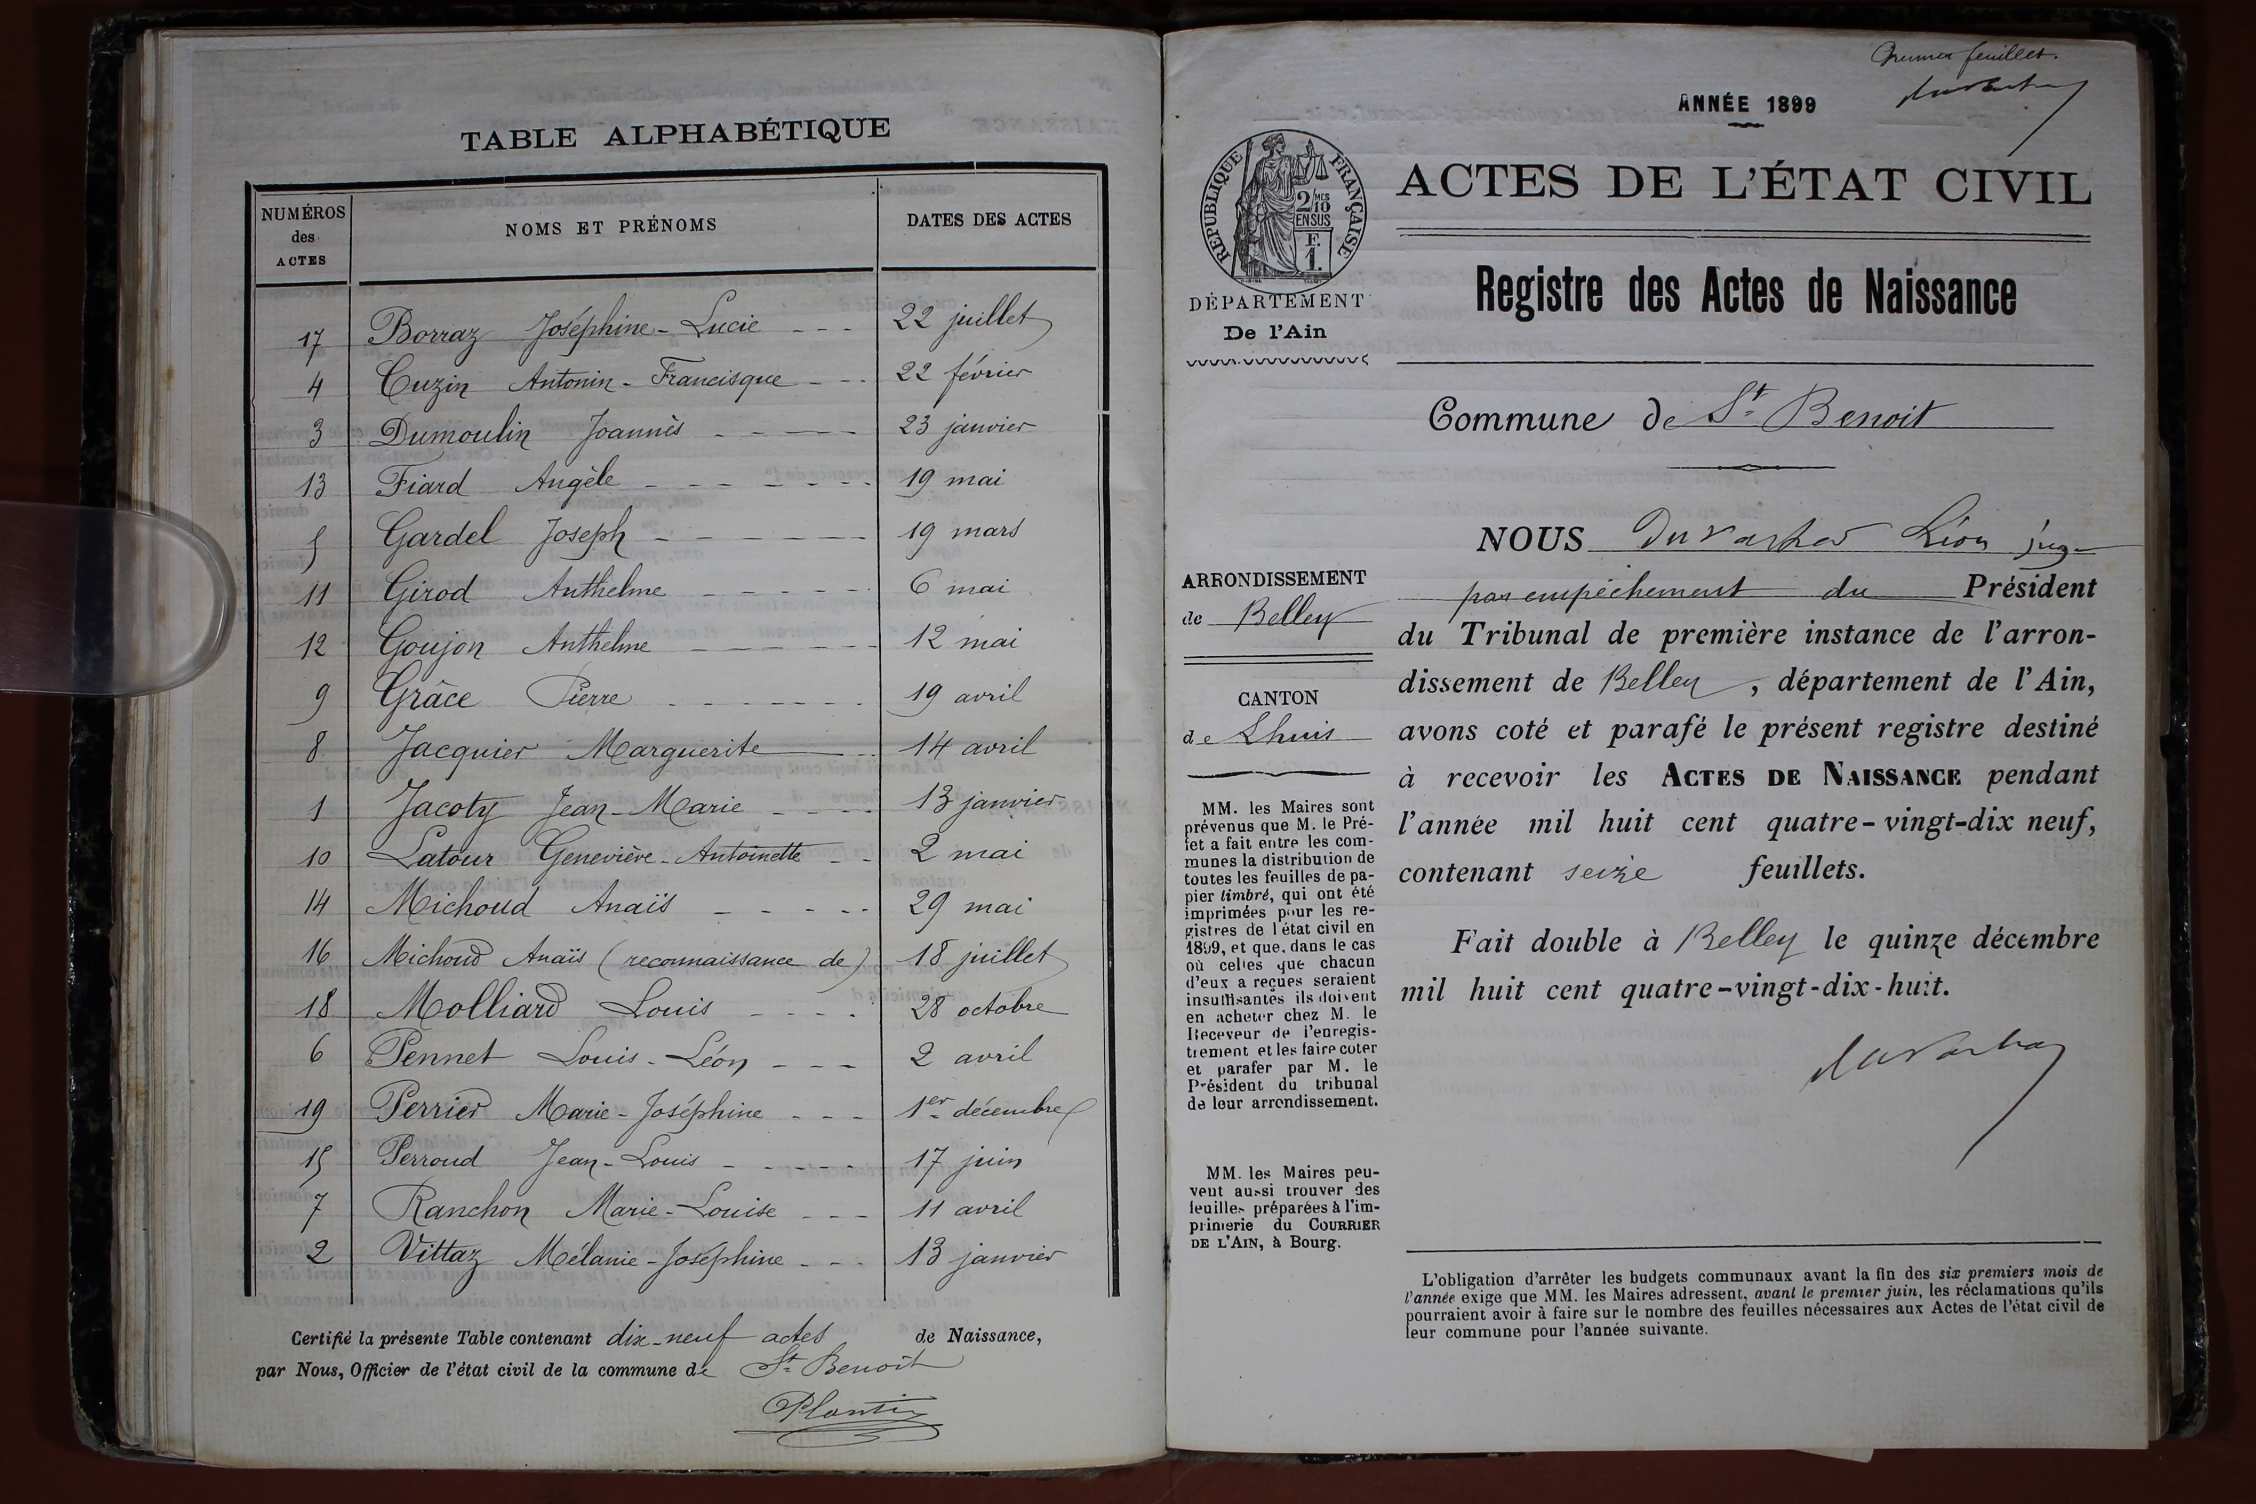 TABLE ALPHABÉTIQUE
NUMÉROS des ACTES NOMS ET PRÉNOMS DATES DES ACTES
17 Borraz Joséphine-Lucie --- 22 juillet
4 Cuzin Antonin-Francisque --- 22 février
3 Dumoulin Joannès --- 23 janvier
13 Fiard Angèle --- 19 mai
5 Gardel Joseph --- 19 mars
11 Girod Anthelme --- 6 mai
12 Goujon Anthelme --- 12 mai
9 Grâce Pierre --- 19 avril
8 Jacquier Marguerite --- 14 avril
1 Jacoty Jean-Marie --- 13 janvier
10 Latour Geneviève-Antoinette -- 2 mai
14 Michoud Anaïs --- 29 mai
16 Michoud Anaïs (reconnaissance de) 18 juillet
18 Molliard Louis --- 28 octobre
6 Pennet Louis-Léon --- 2 avril
19 Perrier Marie-Joséphine --- 1er décembre
15 Perroud Jean-Louis --- 17 juin
7 Ranchon Marie-Louise --- 11 avril
2 Vittaz Mélanie-Joséphine --- 13 janvier
Certifié la présente Table contenant dix-neuf actes de Naissance,
par Nous, Officier de l'état civil de la commune de St Benoît
Plantin
Premier feuillet.
ANNÉE 1899
RÉPUBLIQUE FRANÇAISE
2/10 MES
EN SUS
F.
1.
DÉPARTEMENT
De l'Ain
ACTES DE L'ÉTAT CIVIL
Registre des Actes de Naissance
Commune de St Benoit
ARRONDISSEMENT
de Belley
CANTON
de Lhuis
MM. les Maires sont
prévenus que M. le Pré-
fet a fait entre les com-
munes la distribution de
toutes les feuilles de pa-
pier timbré, qui ont été
imprimées pour les re-
gistres de l'état civil en
1899, et que, dans le cas
où celles que chacun
d'eux a reçues seraient
insuffisantes ils doivent
en acheter chez M. le
Receveur de l'enregis-
trement et les faire coter
et parafer par M. le
Président du tribunal
de leur arrondissement.
MM. les Maires peu-
vent aussi trouver des
feuilles préparées à l'im-
primerie du COURRIER
DE L'AIN, à Bourg.
NOUS Léon juge
par empêchement du Président
du Tribunal de première instance de l'arron-
dissement de Belley, département de l'Ain,
avons coté et parafé le présent registre destiné
à recevoir les ACTES DE NAISSANCE pendant
l'année mil huit cent quatre-vingt-dix neuf,
contenant seize feuillets.
Fait double à Belley le quinze décembre
mil huit cent quatre-vingt-dix-huit.
L'obligation d'arrêter les budgets communaux avant la fin des six premiers mois de
l'année exige que MM. les Maires adressent, avant le premier juin, les réclamations qu'ils
pourraient avoir à faire sur le nombre des feuilles nécessaires aux Actes de l'état civil de
leur commune pour l'année suivante.